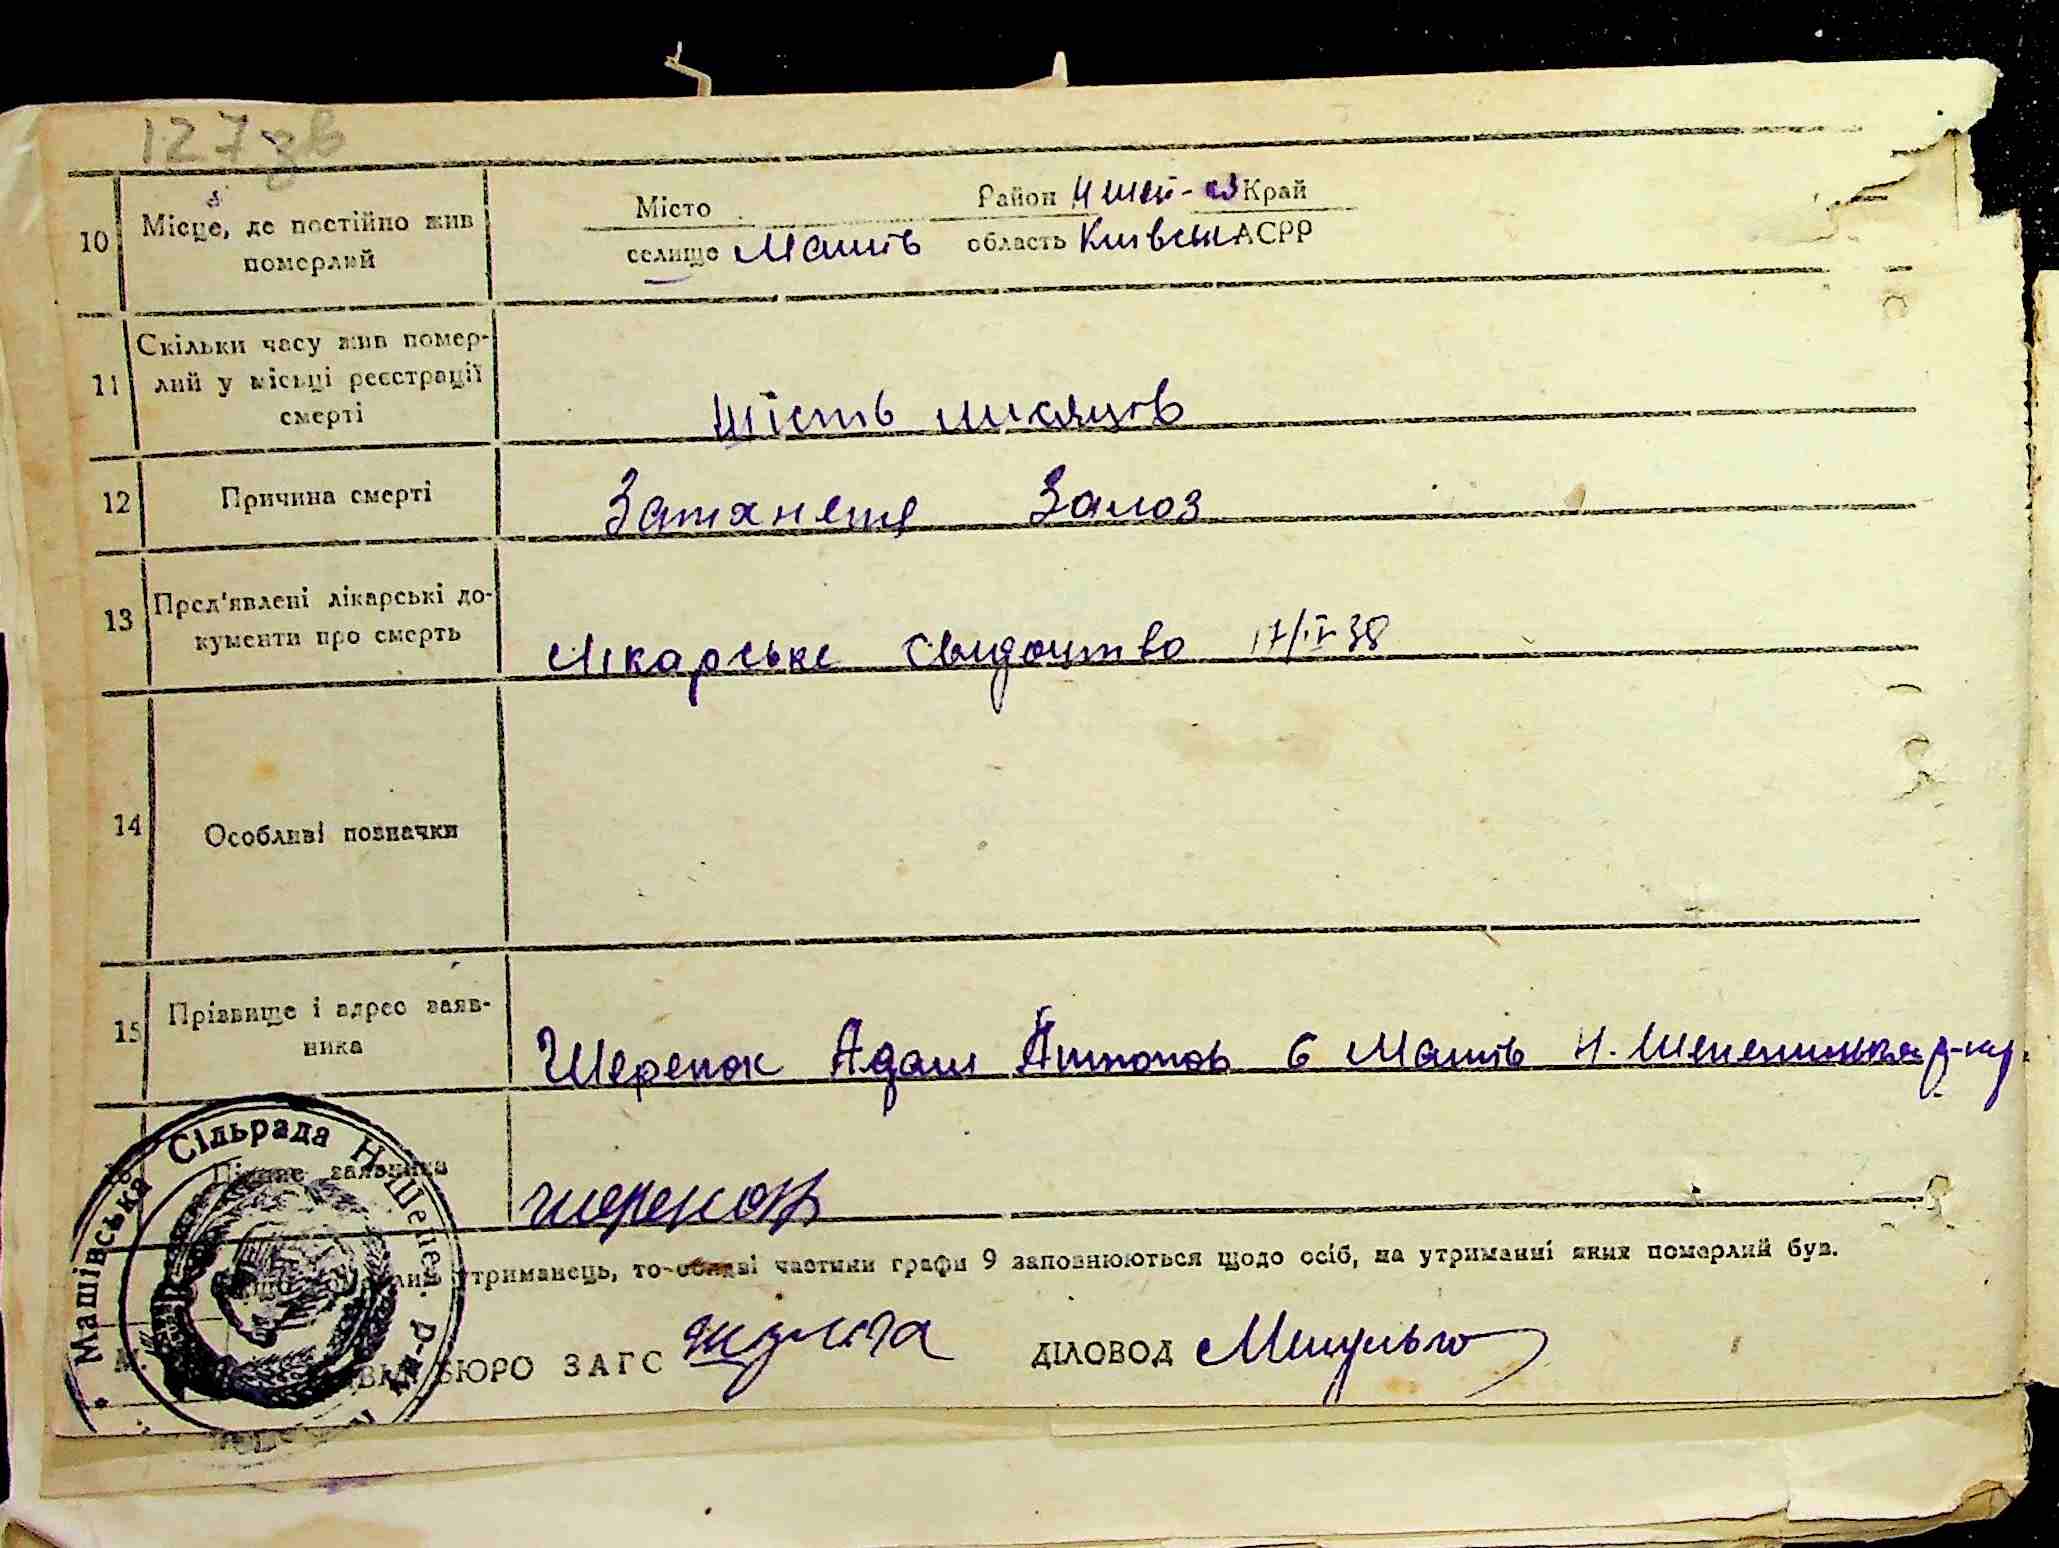 127зв
10 Місце, де постійно жив померлий
Місто Район Н Шеп- Край
селище Машів область Київськ АСРР
11 Скільки часу жив помер-
лий у місьці реєстрації
смерті
шість мисяцов
12 Причина смерті
Залоз
13 Пред'явлені лікарські до-
кументи про смерть
лікарське свидоцтво 17/IV 38
14 Особливі позначки
15 Прізвище і адрес заяв-
ника
Шеренок Адам Антонов с Машів Н. Шепеличський р-ну
Підпис заявника
Шеренок
утриманець, то обидві частини графи 9 заповнюються щодо осіб, на утриманні яких померлий був.
БЮРО ЗАГС ДІЛОВОД
Машівська Сільрада Н-Шепел. р-ну